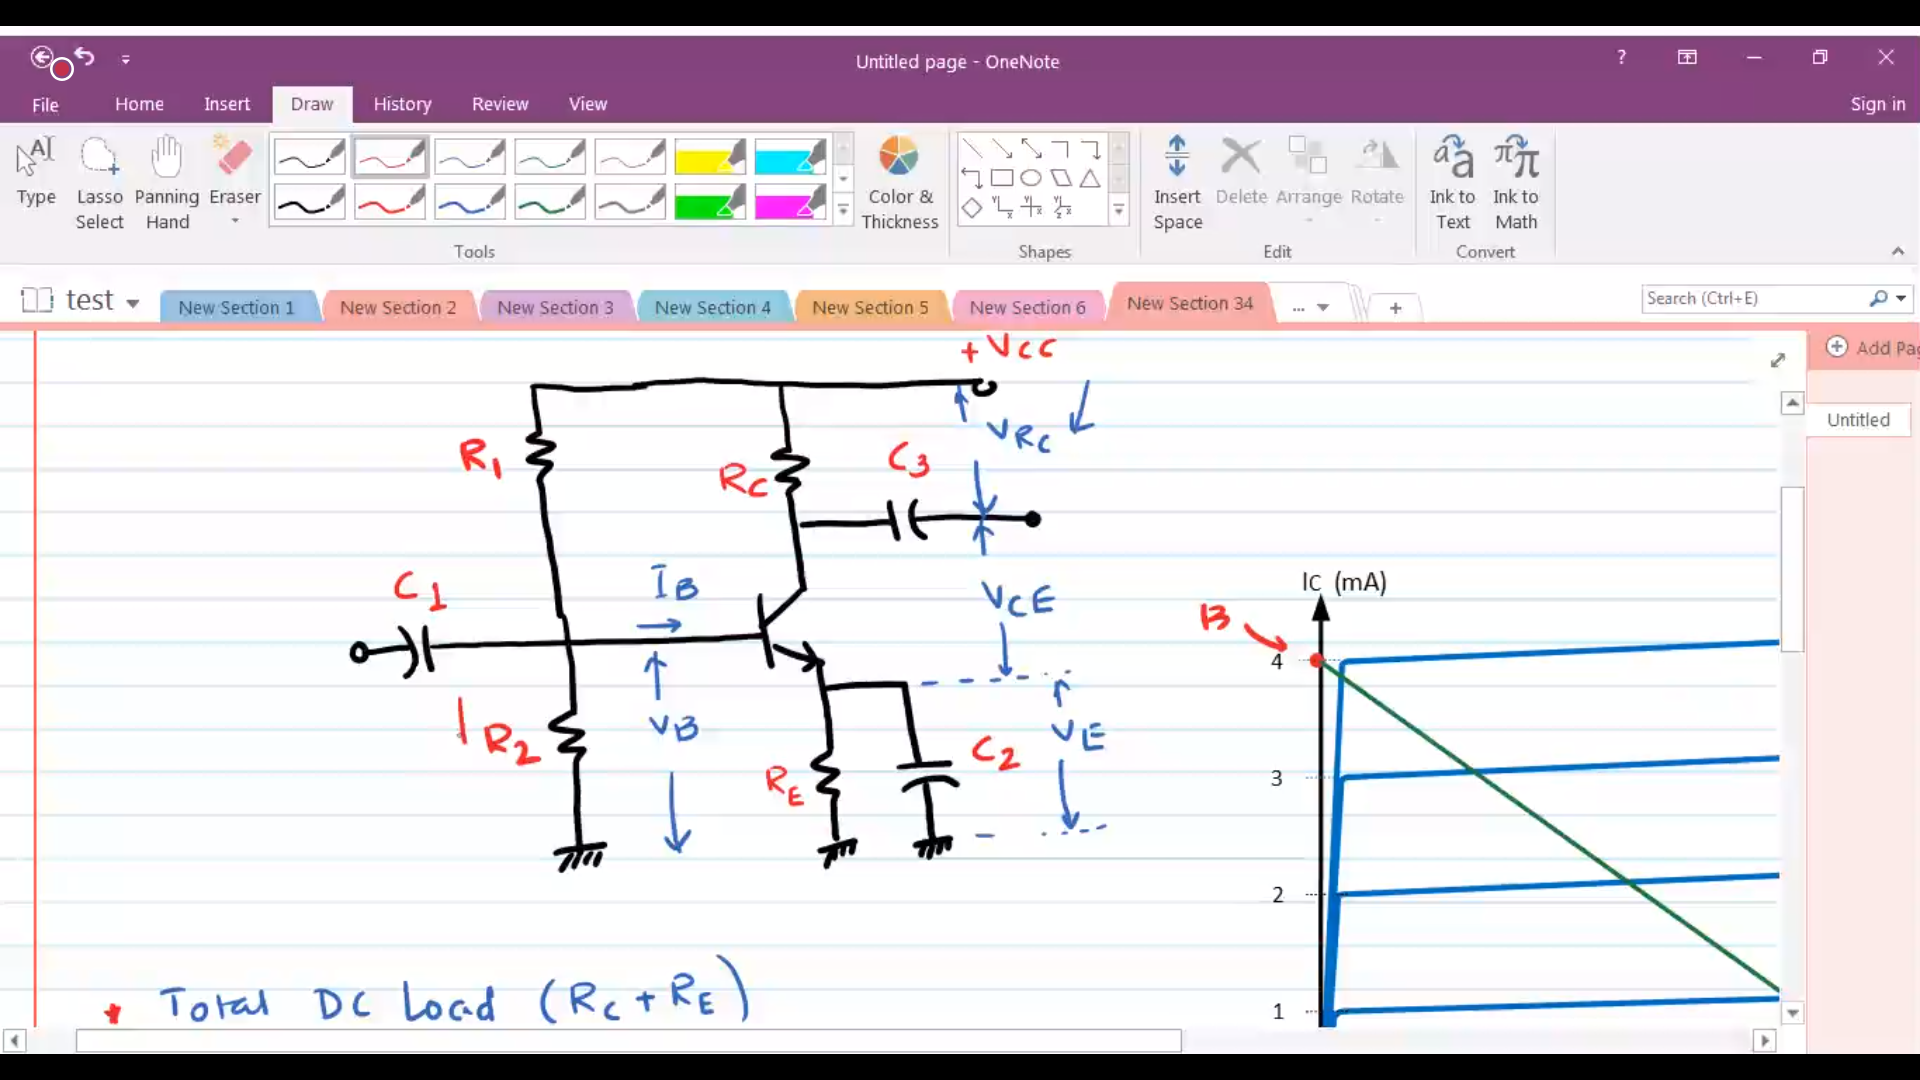 Untitled page - OneNote
?
File Home Insert Draw History Review View
Sign in
Type
Lasso Select
Panning Hand
Eraser
Color & Thickness
Insert Space
Delete
Arrange
Rotate
Ink to Text
Ink to Math
Tools
Shapes
Edit
Convert
test
New Section 1
New Section 2
New Section 3
New Section 4
New Section 5
New Section 6
New Section 34
...
Search (Ctrl+E)
Add Pag
Untitled
+ VCC
VRC
R1
RC
C3
C1
IB
VCE
R2
VB
RE
C2
VE
IC (mA)
B
4
3
2
1
* Total DC Load (RC + RE)